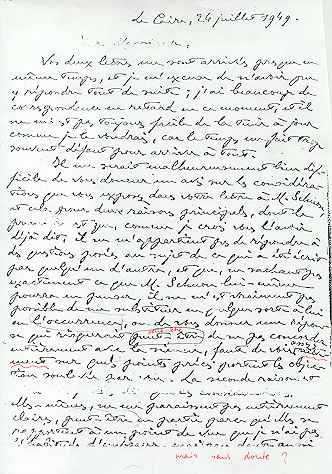 Le Caire, 24 juillet 1949.
Vos deux lettres me sont arrivées presque en
même temps, et je m'excuse de n'avoir pu
y répondre tout de suite; j'ai beaucoup de
correspondance en retard en ce moment, et il
ne m'est pas toujours facile de la tenir à jour
comme je le voudrais, car le temps me fait trop
souvent défaut pour arriver à tout.
Il me serait malheureusement bien dif-
ficile de vous donner un avis sur les considéra-
tions que vous exposez dans votre lettre à M. Schuon,
et cela pour deux raisons principales, dont la
première est que, comme je crois vous l'avoir
déjà dit, il ne m'appartient pas de répondre à
des questions posées au sujet de ce qui a été écrit
par quelqu'un d'autre, et que, ne sachant pas
exactement ce que M. Schuon lui-même
pourra en penser, il ne m'est vraiment pas
possible de me substituer en quelque sorte à lui
en l'occurrence, ou de vous donner une réponse
qui risquerait peut-être de ne pas concorder
entièrement avec la sienne, faute de voir
sur quels points précis portent les objec-
tions soulevées par La seconde raison est
elles-mêmes, ne me paraissent pas entièrement
claires, peut-être en partie parce qu'elles se
rapportent à un point de vue que je n'ai pas
l'habitude d'envisager
mais sans doute ?